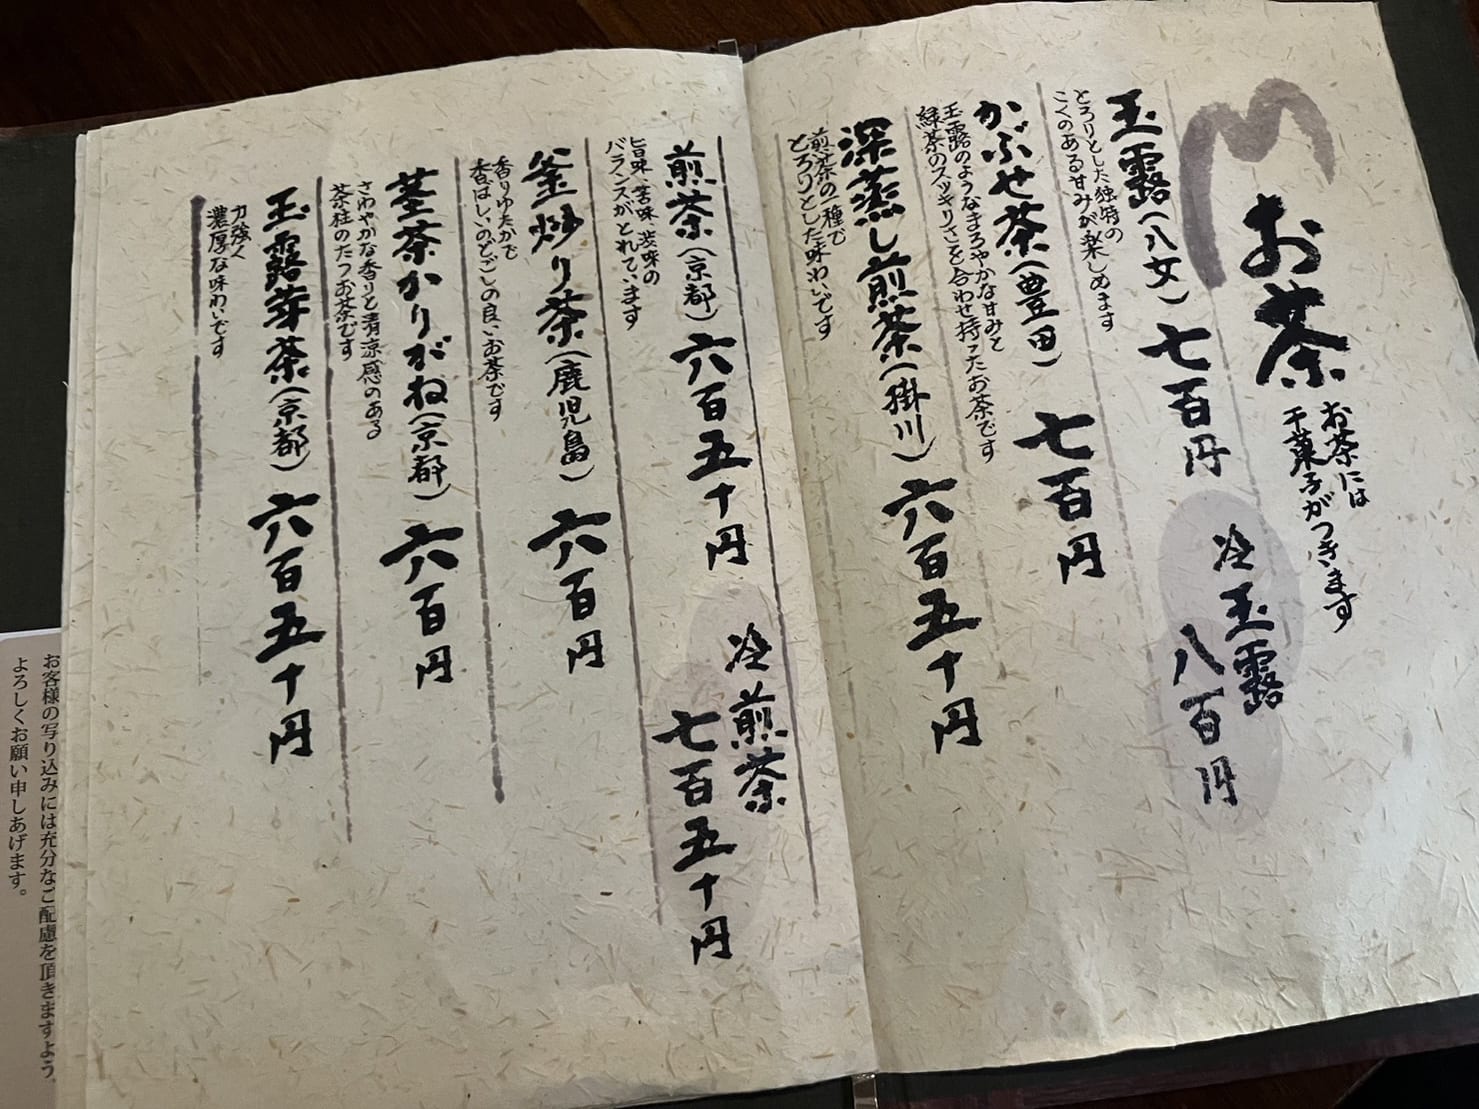 お茶
お茶には
干菓子がつきます
玉露(八女)七百円
冷玉露
八百円
とろりとした独特の
こくのある甘みが楽しめます
かぶせ茶(豊田)七百円
玉露のようなまろやかな甘みと
緑茶のスッキリさを合わせ持ったお茶です
深蒸し煎茶(掛川)六百五十円
煎茶の一種で
とろりとした味わいです
煎茶(京都)六百五十円
冷煎茶
七百五十円
旨味、苦味、渋味の
バランスがとれています
釜炒り茶(鹿児島)六百円
香りゆたかで
香ばしいのどごしの良いお茶です
茎茶かりがね(京都)六百円
さわやかな香りと清涼感のある
茶柱のたつお茶です
玉露芽茶(京都)六百五十円
力強く
濃厚な味わいです
お客様の写り込みには充分なご配慮を頂きますよう、
よろしくお願い申しあげます。